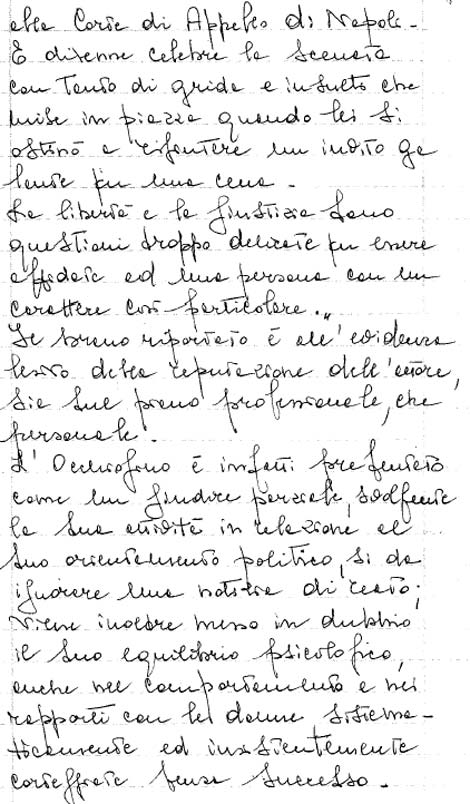 alla Corte di Appello di Napoli.
E divenne celebre la scenata
con tanto di grida e insulti che
mise in piazza quando lei si
ostinò a rifiutare un invito ga
lante per una cena.
La libertà e la giustizia sono
questioni troppo delicate per essere
affidate ad una persona con un
carattere così particolare."
Il brano riportato è all'evidenza
lesivo della reputazione dell'attore,
sia sul piano professionale, che
personale.
L' è infatti presentato
come un giudice parziale,
la sua attività in relazione al
suo orientamento politico, sì da
ignorare una notizia di reato;
viene inoltre messo in dubbio
il suo equilibrio psicologico,
anche nel comportamento e nei
rapporti con le donne, sistema-
ticamente ed insistentemente
corteggiate senza successo.